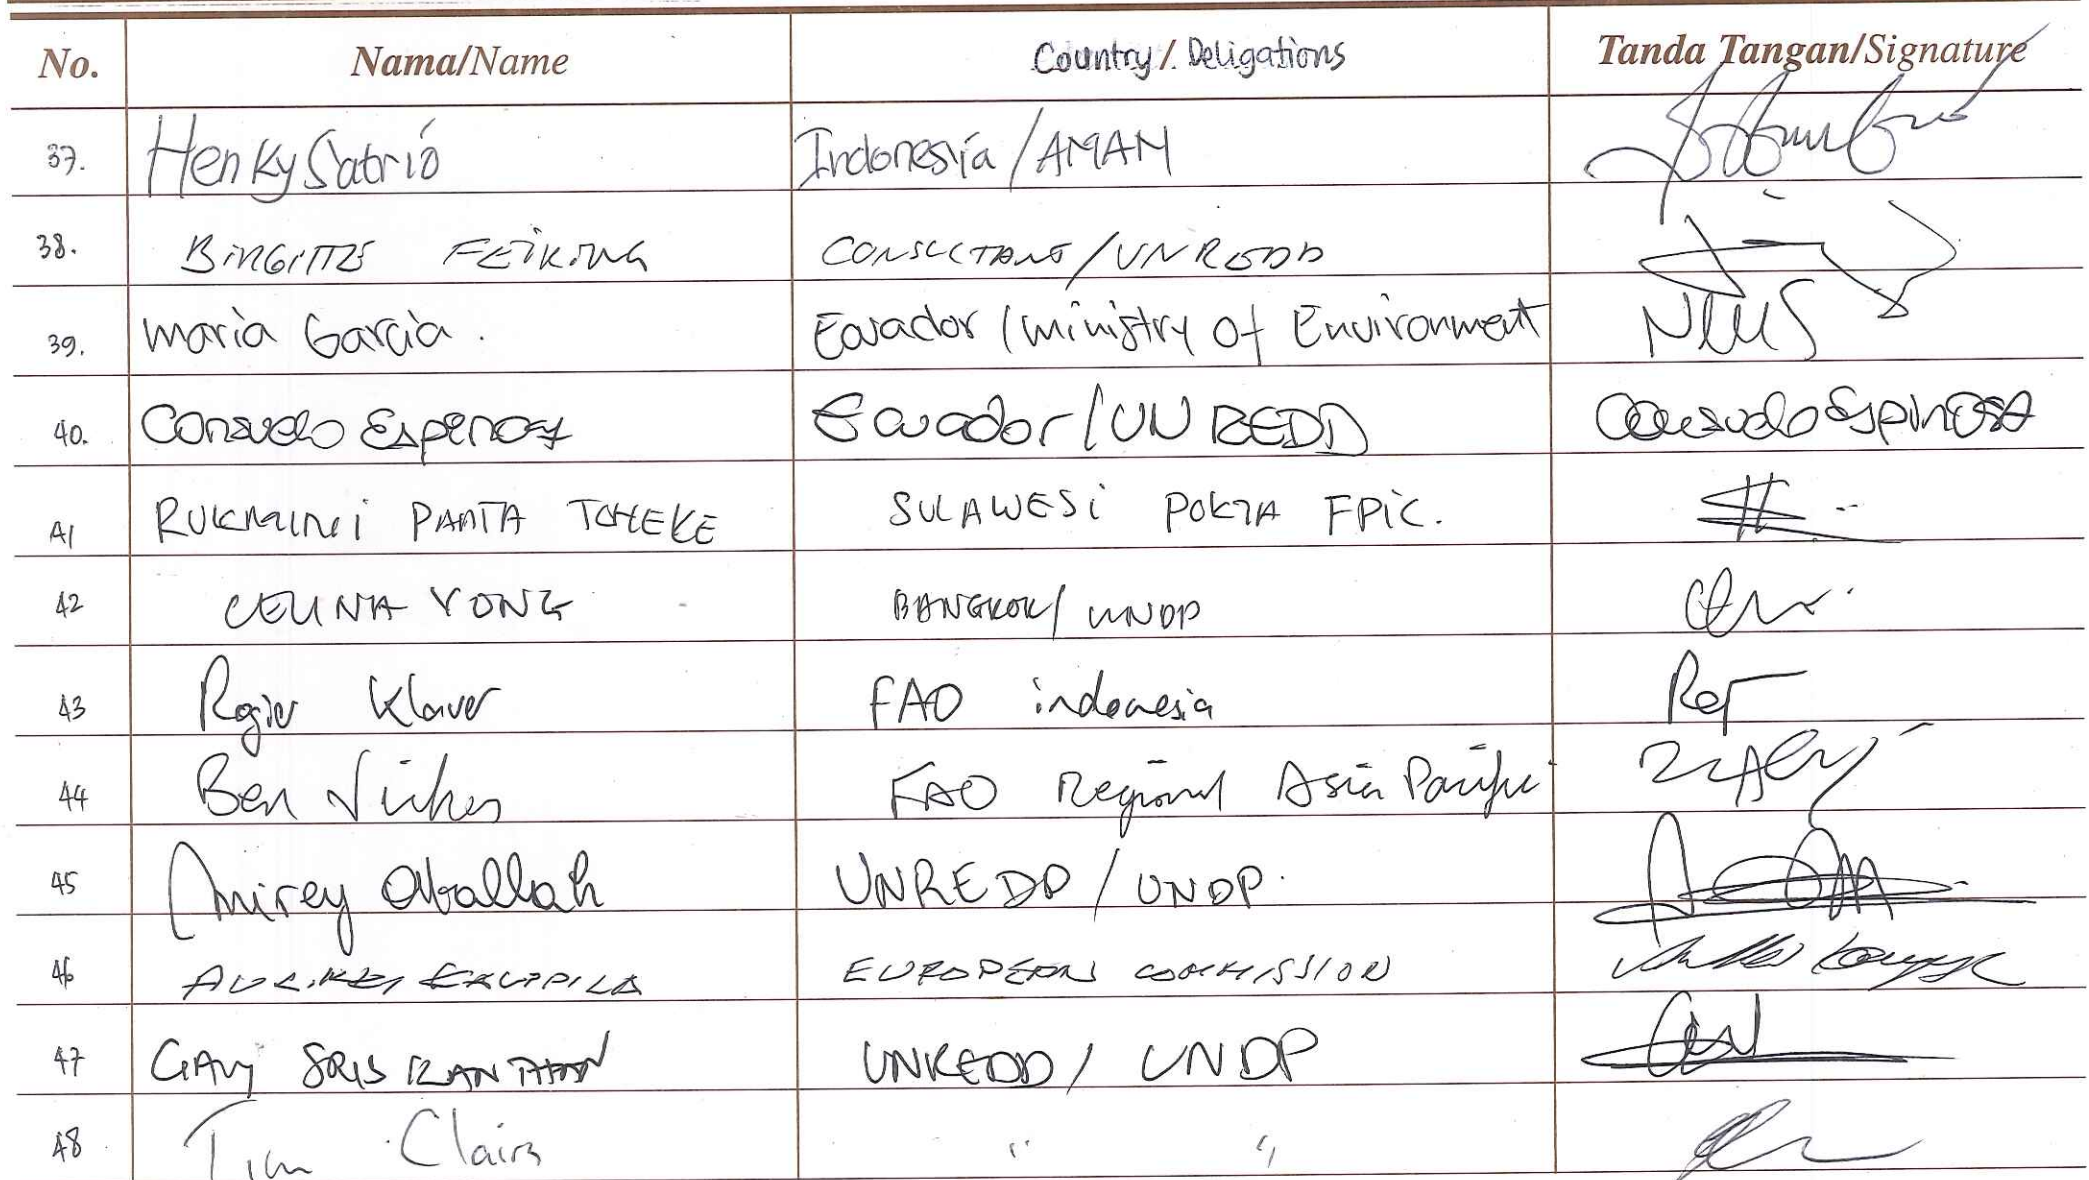 No. Nama/Name Country / Deligations Tanda Tangan/Signature
37. Henky Satrio Indonesia / AMAN
38. BIRGITTE FEIRING CONSULTANT / UNREDD
39. Maria Garcia. Ecuador / Ministry of Environment
40. Consuelo Espinosa Ecuador / UN REDD Consuelo Espinosa
41 RUKMINI PAATA TOHEKE SULAWESI POKJA FPIC.
42 CELINA YONG BANGKOK / UNDP
43 Rogier Klaver FAO indonesia
44 Ben Vickers FAO Regional Asia Pacific
45 Mirey Atallah UNREDD / UNDP.
46 EUROPEAN COMMISSION
47 GAYA SRISKANTHAN UNREDD / UNDP
48 Tim Clairs " "